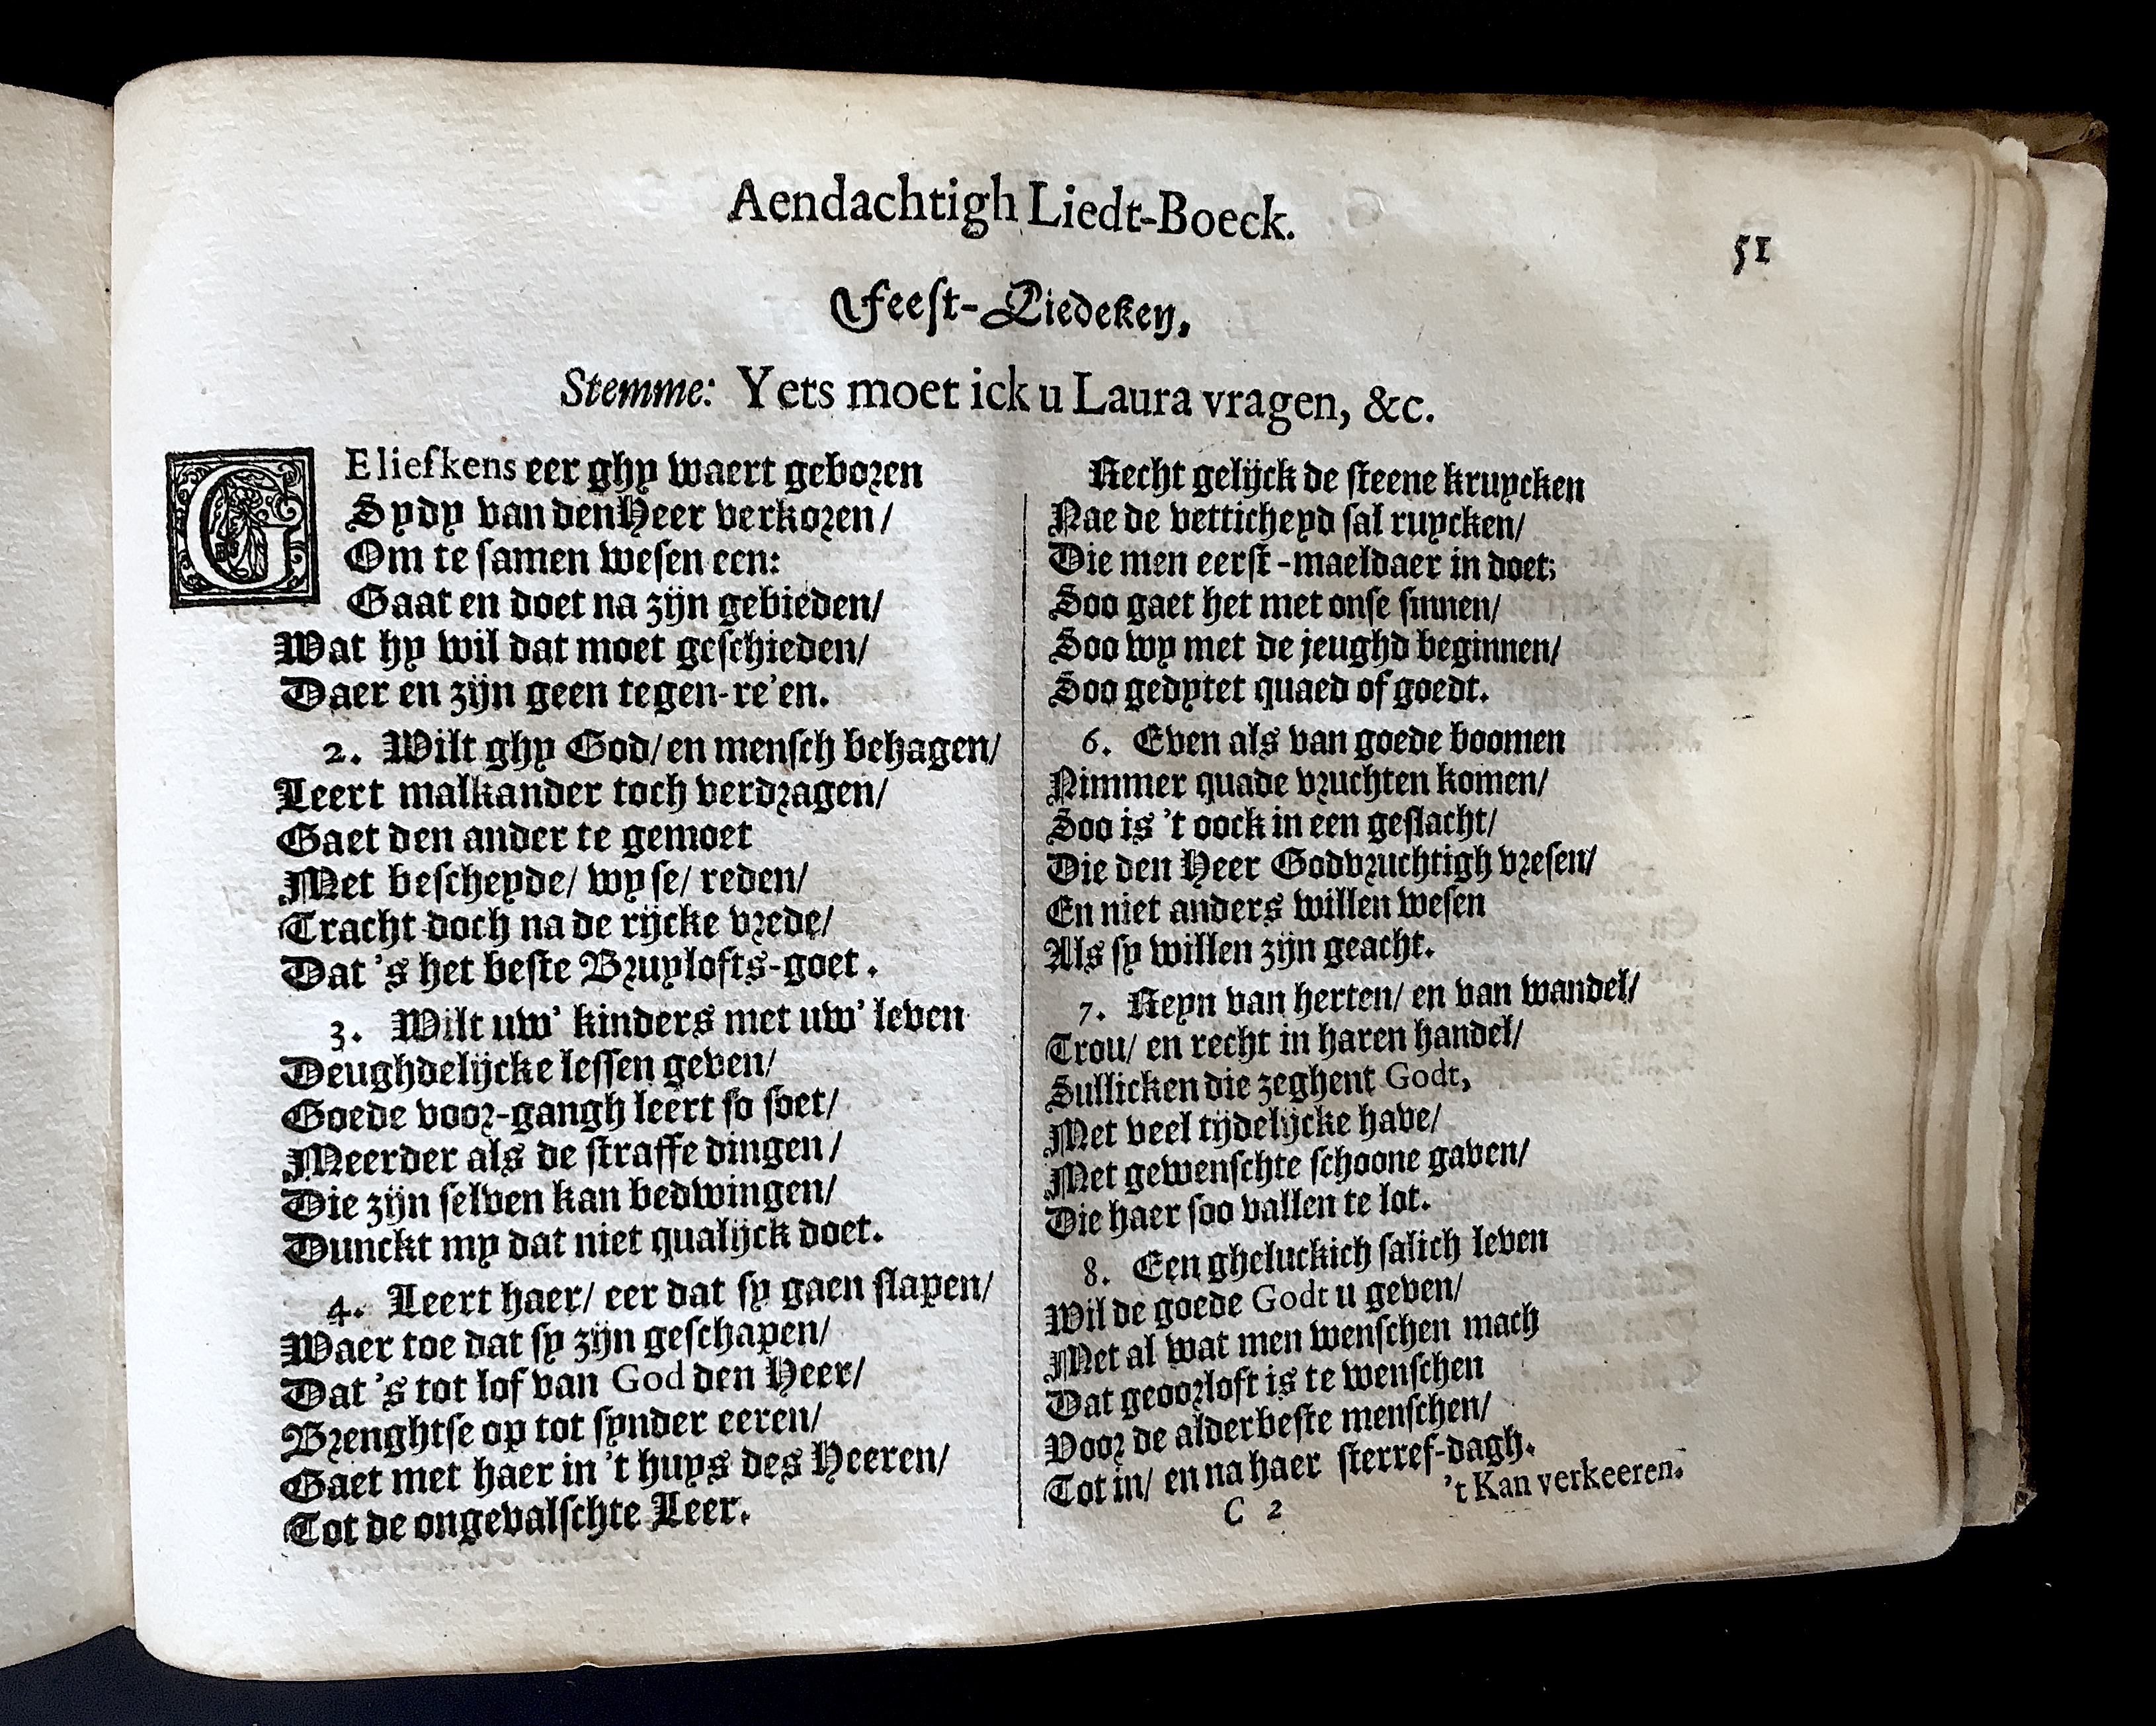 Aendachtigh Liedt-Boeck.
51
Feest-Liedeken.
Stemme: Yets moet ick u Laura vragen, &c.
GEliefkens eer ghy waert geboren
Sydy van den Heer verkoren/
Om te samen wesen een:
Gaat en doet na zijn gebieden/
Wat hy wil dat moet geschieden/
Daer en zijn geen tegen-re'en.
2. Wilt ghy God/ en mensch behagen/
Leert malkander toch verdragen/
Gaet den ander te gemoet
Met bescheyde/ wyse/ reden/
Tracht doch na de rijcke vrede/
Dat 's het beste Bruylofts-goet.
3. Wilt uw' kinders met uw' leven
Deughdelijcke lessen geven/
Goede voor-gangh leert so soet/
Meerder als de straffe dingen/
Die zijn selven kan bedwingen/
Dunckt my dat niet qualijck doet.
4. Leert haer/ eer dat sy gaen slapen/
Waer toe dat sy zijn geschapen/
Dat 's tot lof van God den Heer/
Brenghtse op tot synder eeren/
Gaet met haer in 't huys des Heeren/
Tot de ongevalschte Leer.
Recht gelijck de steene kruycken
Nae de vetticheyd sal ruycken/
Die men eerst-mael daer in doet;
Soo gaet het met onse sinnen/
Soo wy met de jeughd beginnen/
Soo gedytet quaed of goedt.
6. Even als van goede boomen
Nimmer quade vruchten komen/
Soo is 't oock in een geslacht/
Die den Heer Godvruchtigh vresen/
En niet anders willen wesen
Als sy willen zijn geacht.
7. Reyn van herten/ en van wandel/
Trou/ en recht in haren handel/
Sullicken die zeghent Godt,
Met veel tijdelijcke have/
Met gewenschte schoone gaven/
Die haer soo vallen te lot.
8. Een gheluckich salich leven
Wil de goede Godt u geven/
Met al wat men wenschen mach
Dat geoorloft is te wenschen
Voor de alderbeste menschen/
Tot in/ en na haer sterref-dagh.
't Kan verkeeren.
C 2